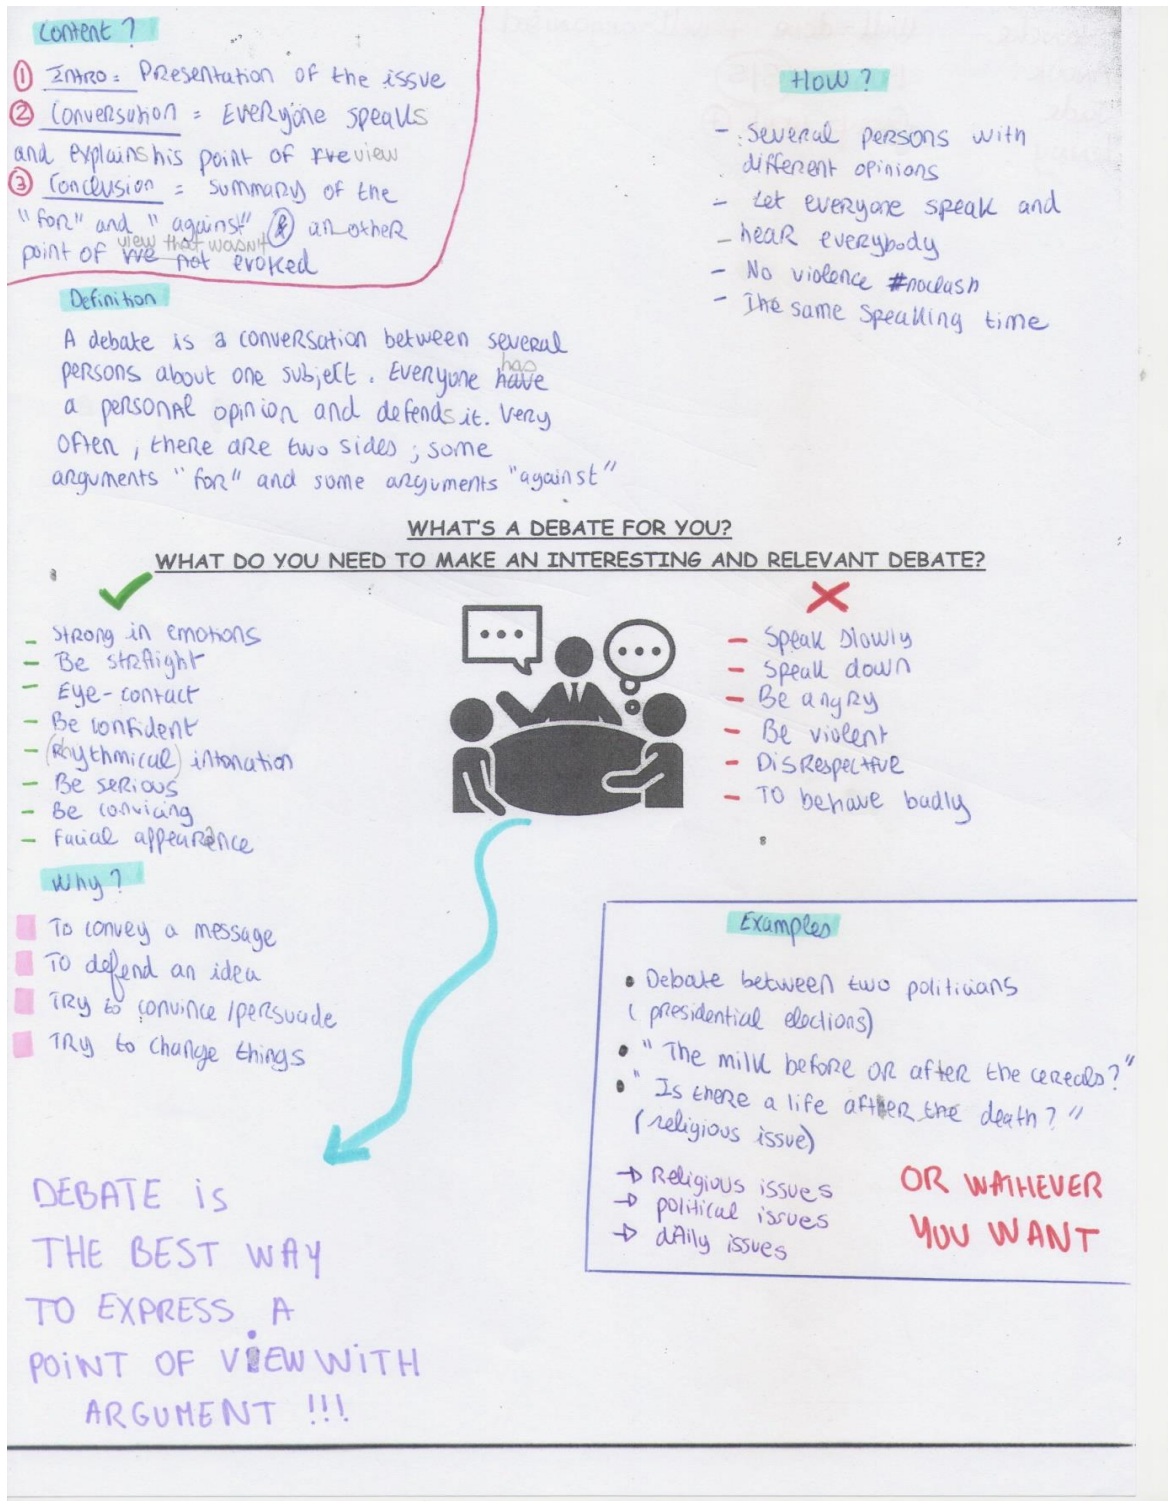 Content ?
① INTRO = Presentation of the issue
② Conversation = Everyone speaks
and explains his point of view
③ Conclusion = summary of the
"for" and "against" & another
point of view that wasn't evoked
How ?
- Several persons with
different opinions
- Let everyone speak and
- hear everybody
- No violence #noclash
- The same speaking time
Definition
A debate is a conversation between several
persons about one subject. Everyone has
a personal opinion and defends it. Very
often, there are two sides ; some
arguments "for" and some arguments "against"
WHAT'S A DEBATE FOR YOU?
WHAT DO YOU NEED TO MAKE AN INTERESTING AND RELEVANT DEBATE?
- Strong in emotions
- Be straight
- Eye-contact
- Be confident
- (Rhythmical) intonation
- Be serious
- Be convicing
- Facial appearance
- Speak slowly
- Speak down
- Be angry
- Be violent
- Disrespectful
- To behave badly
Why ?
To convey a message
To defend an idea
Try to convince / persuade
Try to change things
Examples
• Debate between two politicians
(presidential elections)
• "The milk before or after the cereals?"
• "Is there a life after the death?"
(religious issue)
→ Religious issues
→ political issues
→ daily issues
OR WATHEVER
YOU WANT
DEBATE is
THE BEST WAY
TO EXPRESS A
POINT OF VIEW WITH
ARGUMENT !!!